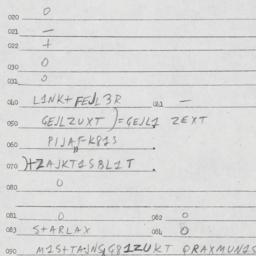 020 0
021 —
022 +
030 0
031 0
040 L1NK+FEJL3R 041 —
050 GEJLZUXT)=GEJL1 ZEXT
060 PIJAF-K813
070 )+ZAJKT1SBL1T
080 0
081 0 082 0
083 S+ARLAX 084 0
090 M1S+TAJNS,G81ZUKT QRAXMUN1S